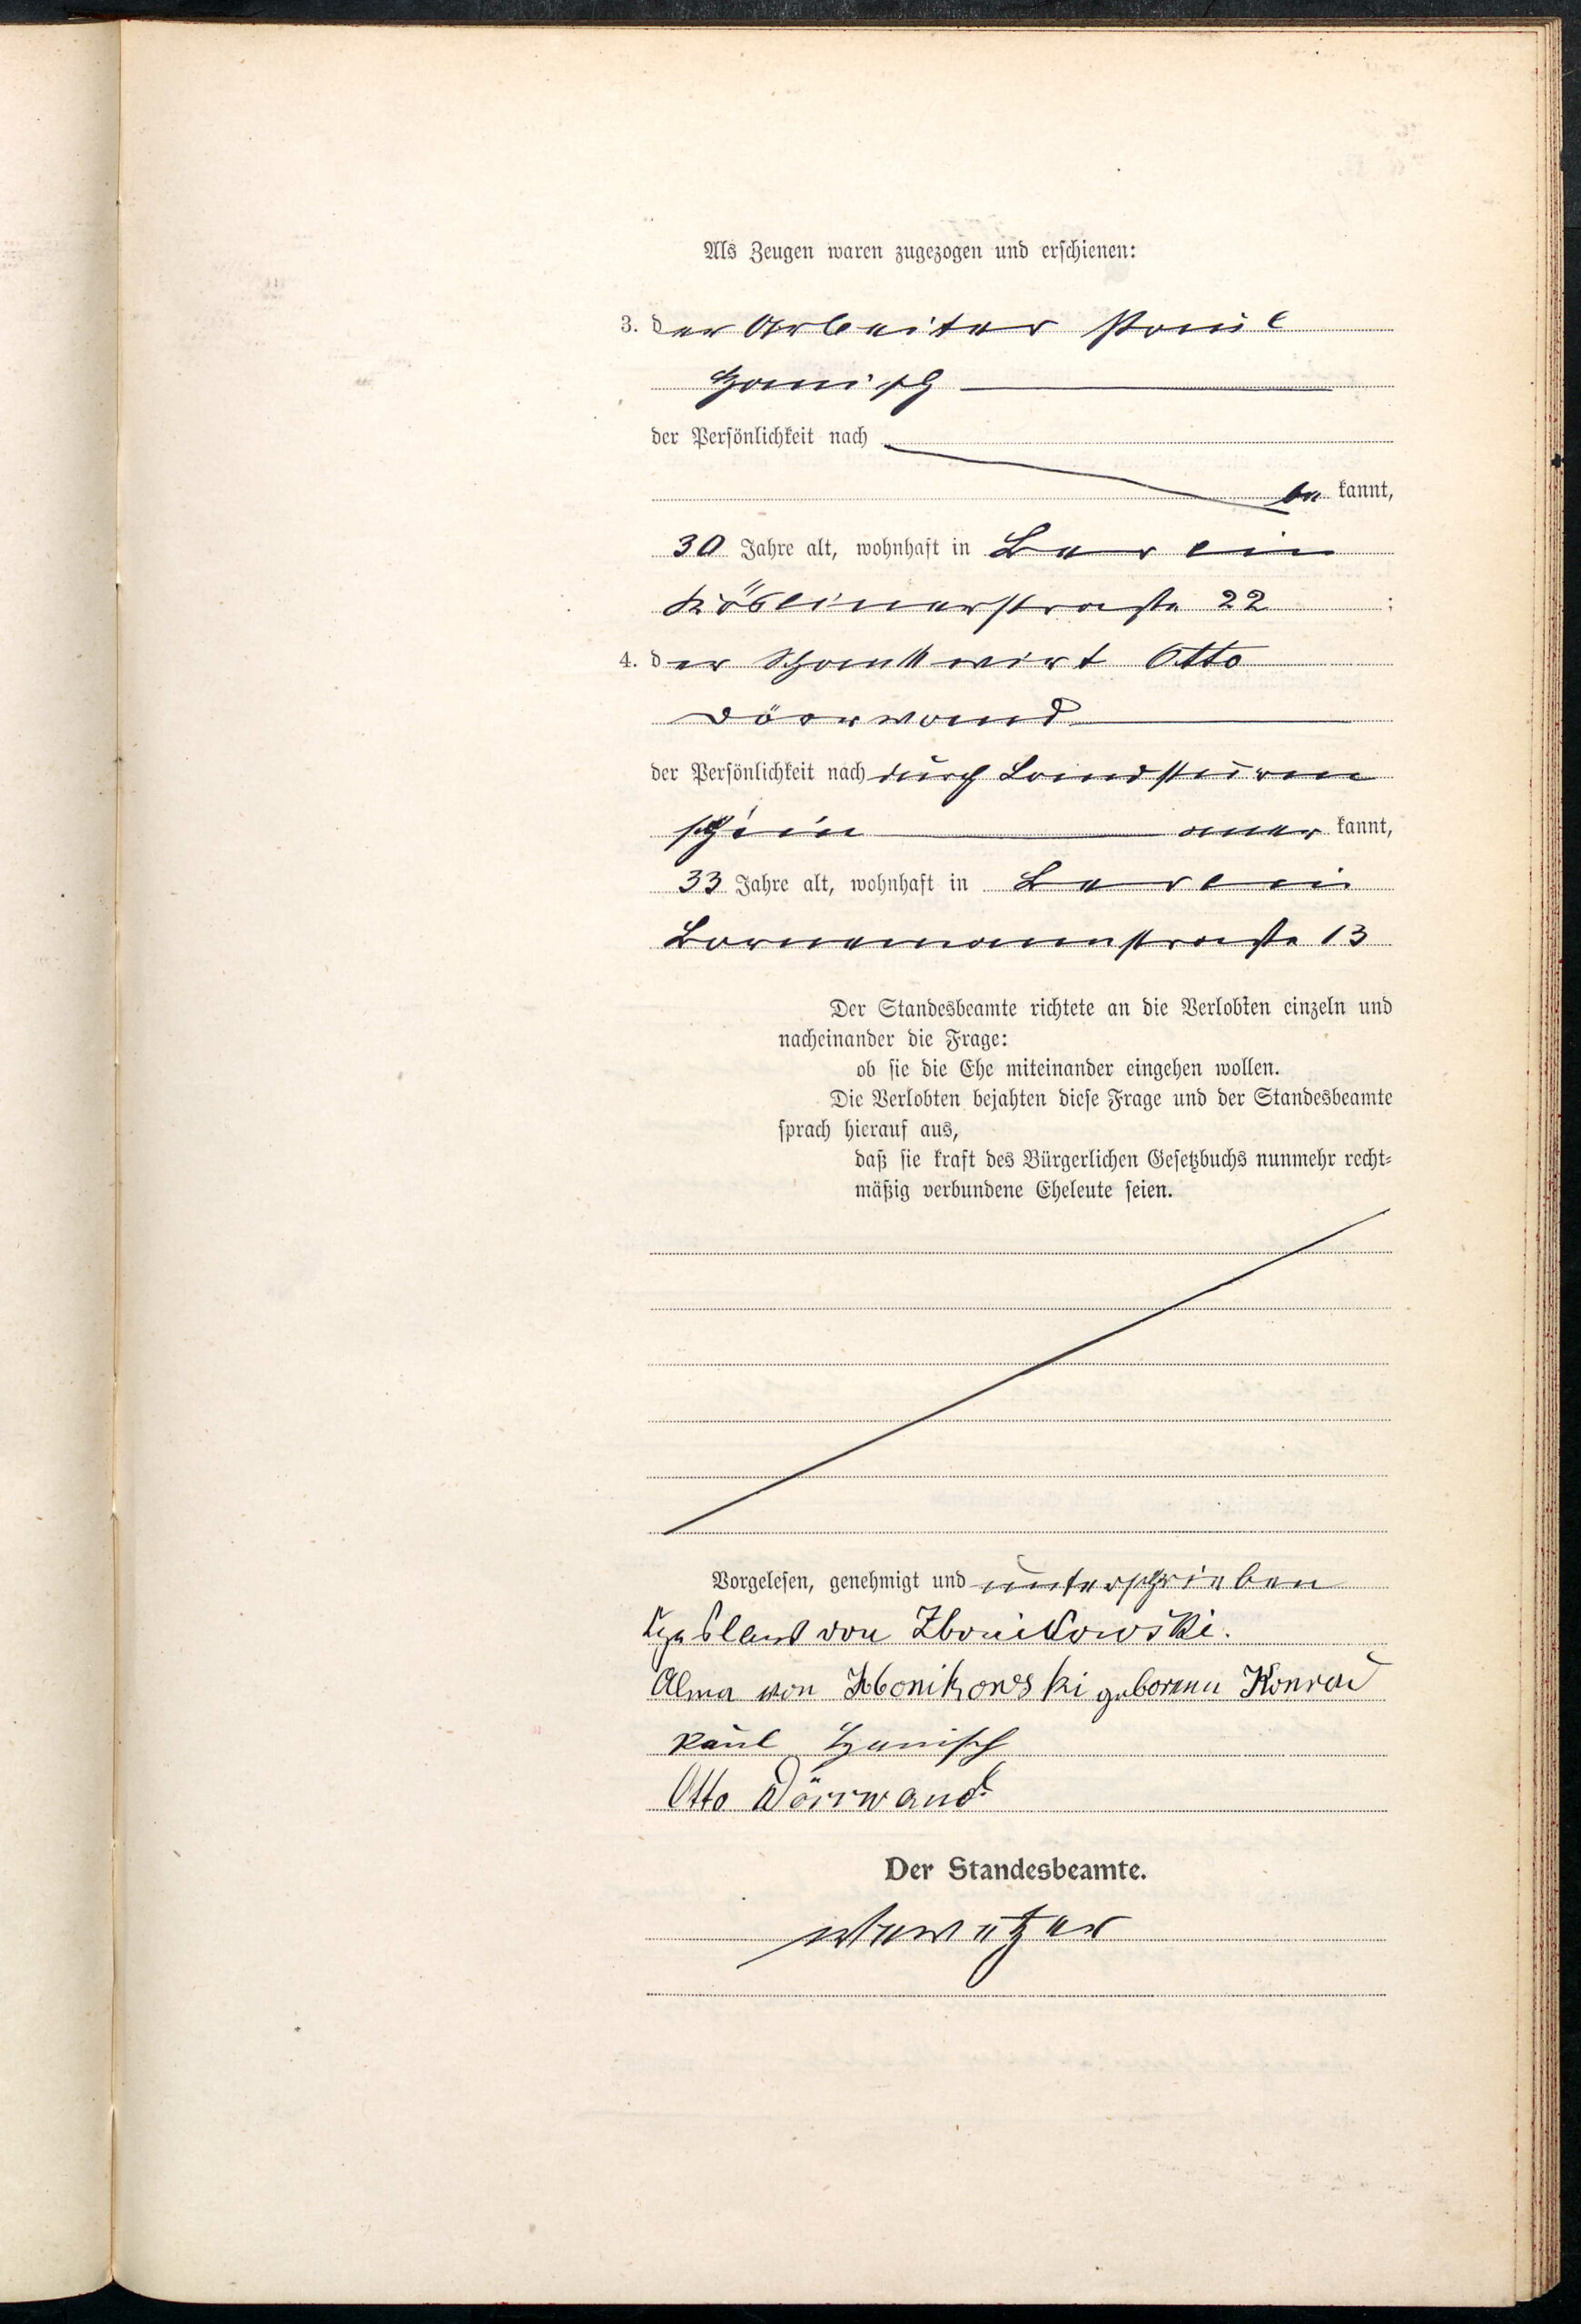 Als Zeugen waren zugezogen und erschienen:
3. der Arbeiter Paul
Hanisch
der Persönlichkeit nach
be kannt,
30 Jahre alt, wohnhaft in Berlin
Kösliner straße 22 :
4. der Schankwirt Otto
Dörrwand
der Persönlichkeit nach durch Landsturm
schein aner kannt,
33 Jahre alt, wohnhaft in Berlin
Bornemannstraße 13
Der Standesbeamte richtete an die Verlobten einzeln und
nacheinander die Frage:
ob sie die Ehe miteinander eingehen wollen.
Die Verlobten bejahten diese Frage und der Standesbeamte
sprach hierauf aus,
daß sie kraft des Bürgerlichen Gesetzbuchs nunmehr recht-
mäßig verbundene Eheleute seien.
Vorgelesen, genehmigt und unterschrieben
von Zbonikowski.
Alma von Zbonikowski geborene Konrad
Paul Hanisch
Otto Dörrwand
Der Standesbeamte.